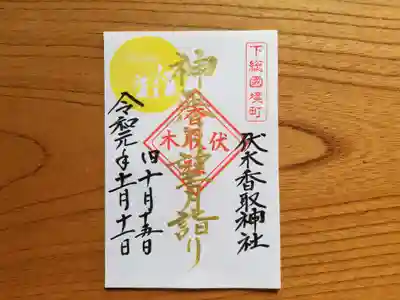 下総國境町
伏木香取神社
神香取望月詣り
伏
木
旧十月十五日
令和元年十一月十一日